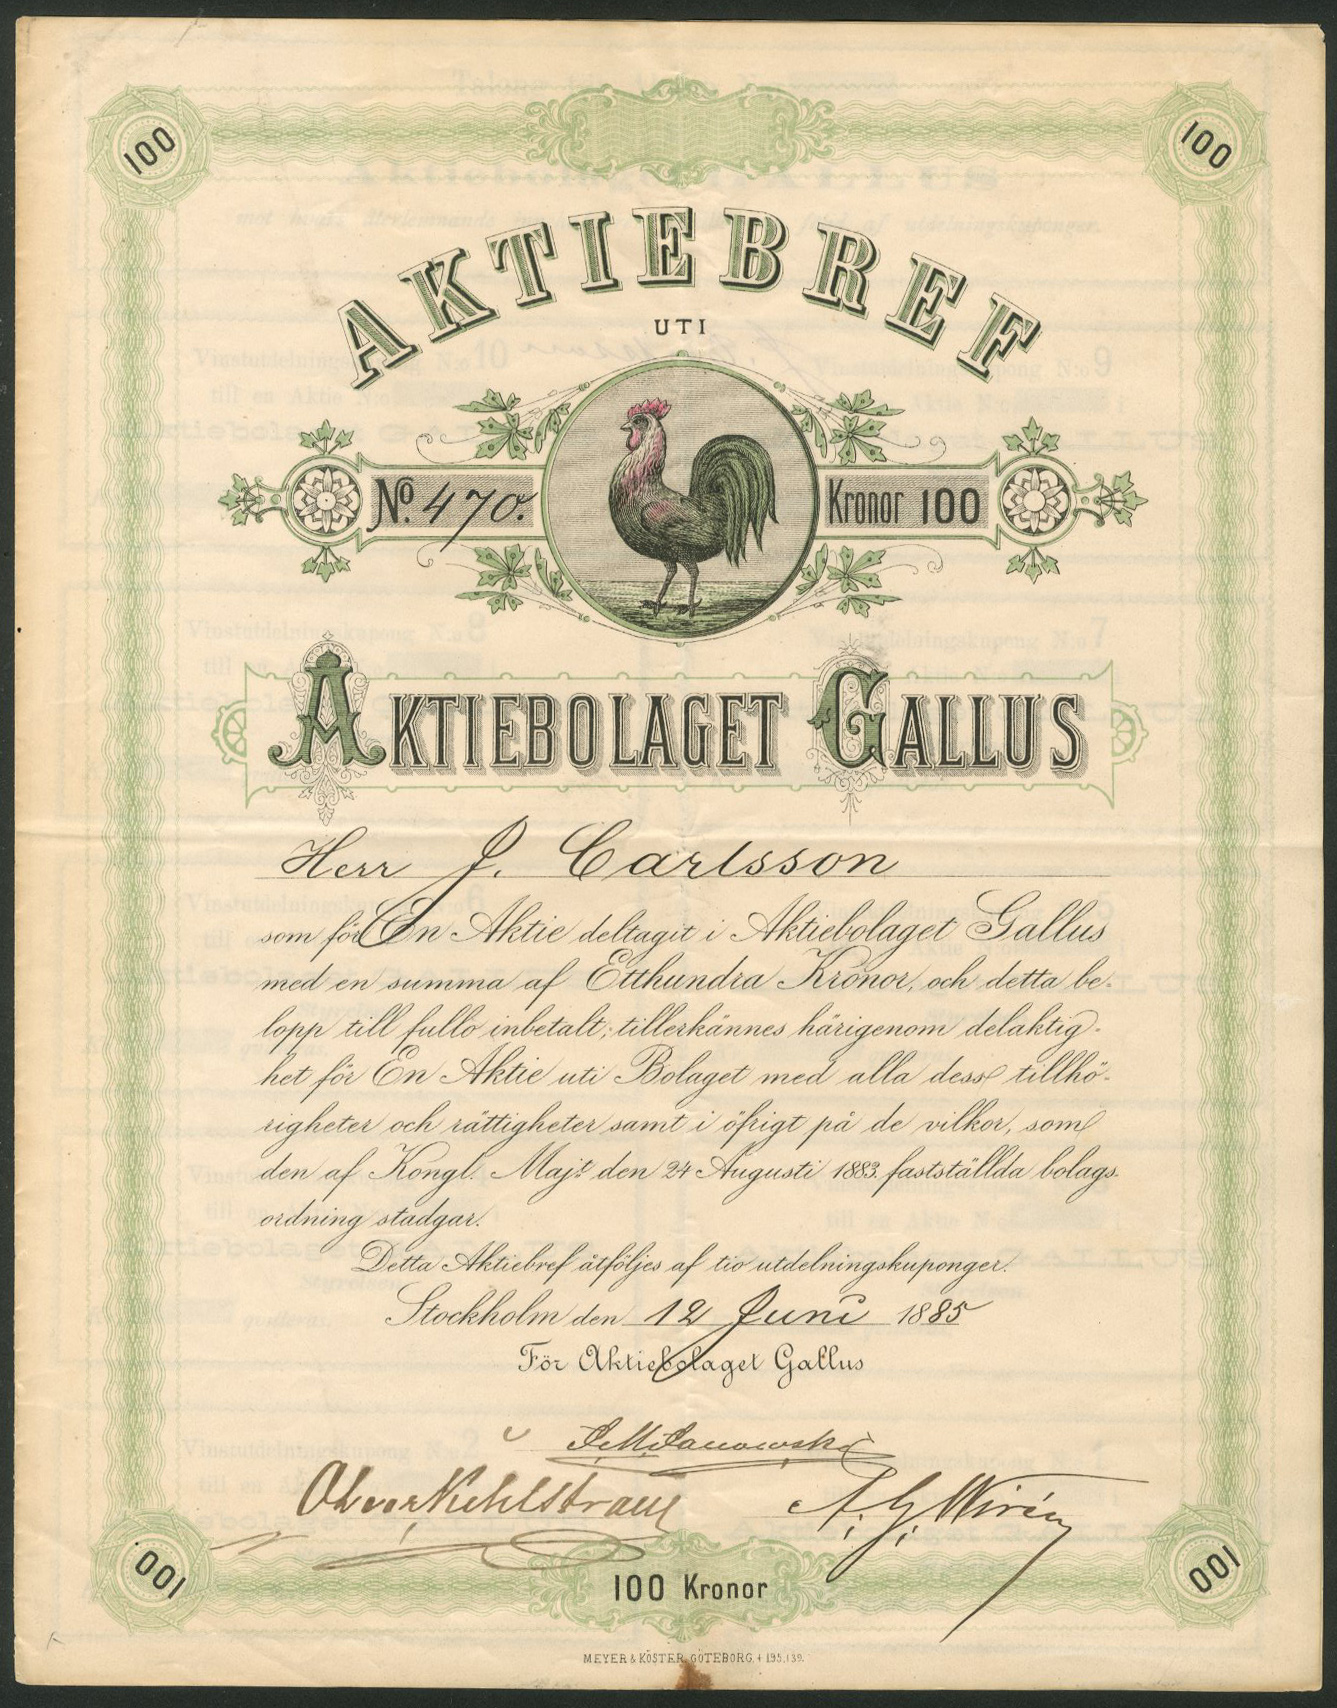 100
100
AKTIEBREF
UTI
No. 470.
Kronor 100
AKTIEBOLAGET GALLUS
Herr J. Carlsson
som för En Aktie deltagit i Aktiebolaget Gallus
med en summa af Etthundra Kronor, och detta be-
lopp till fullo inbetalt, tillerkännes härigenom delaktig-
het för En Aktie uti Bolaget med alla dess tillhö-
righeter och rättigheter samt i öfrigt på de vilkor, som
den af Kongl. Maj:t den 24 Augusti 1883 fastställda bolags-
ordning stadgar.
Detta Aktiebref åtföljes af tio utdelningskuponger.
Stockholm den 12 Juni 1885
För Aktiebolaget Gallus
A. G. Wirén
100
100 Kronor
100
MEYER & KÖSTER, GÖTEBORG.